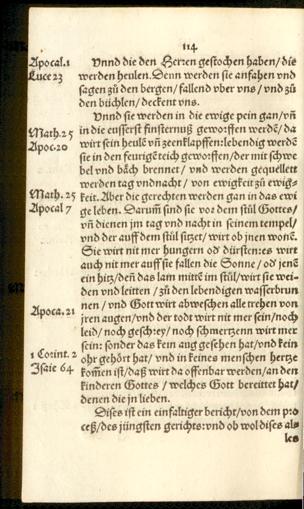 114
Apocal. 1 Vnnd die den Herren gestochen haben/die
Luce 23 werden heulen. Denn werden sie anfahen vnd
sagen zů den bergen/fallend vber vns/vnd zů
den büchlen/deckent vns.
Vnnd sie werden in die ewige pein gan/vñ
Math. 25 in die eusserst finsternuß geworffen werdẽ/da
Apoc. 20 wirt sein heulẽ vñ zeenklapffen: lebendig werdẽ
sie in den feurigẽ teich geworffen/der mit schwe
bel vnd bäch brennet/vnd werden gequellett
werden tag vnd nacht/von ewigkeit zů ewig⸗
Math. 25 keit. Aber die gerechten werden gan in das ewi
Apocal 7 ge leben. Darumb sind sie vor dem stůl Gottes/
vñ dienen jm tag vnd nacht in seinem tempel/
vnd der auff dem stůl sitzet/wirt ob jnen wonẽ.
Sie wirt nit mer hungern od dürsten: es wirt
auch nit mer auff sie fallen die Sonne/od jenẽ
ein hitz/deñ das lam mittẽ im stůl/wirt sie wei⸗
den vnd leitten/zů den lebendigen wasserbrun
nen/vnd Gott wirt abweschen alle trehen von
Apoca. 21 jren augen/vnd der todt wirt nit mer sein/noch
leid/noch geschrey/noch schmertzenn wirt mer
sein: sonder das kein aug gesehen hat/vnd kein
1 Corint. 2 ohr gehört hat/vnd in keines menschen hertze
Isaie 64 kom̃en ist/daß wirt da offenbar werden/an den
kinderen Gottes/welches Gott bereittet hat/
denen die jn lieben.
Dises ist ein einfaltiger bericht/von dem pro
ceß/des jüngsten gerichts: vnd ob wol dises al⸗
les